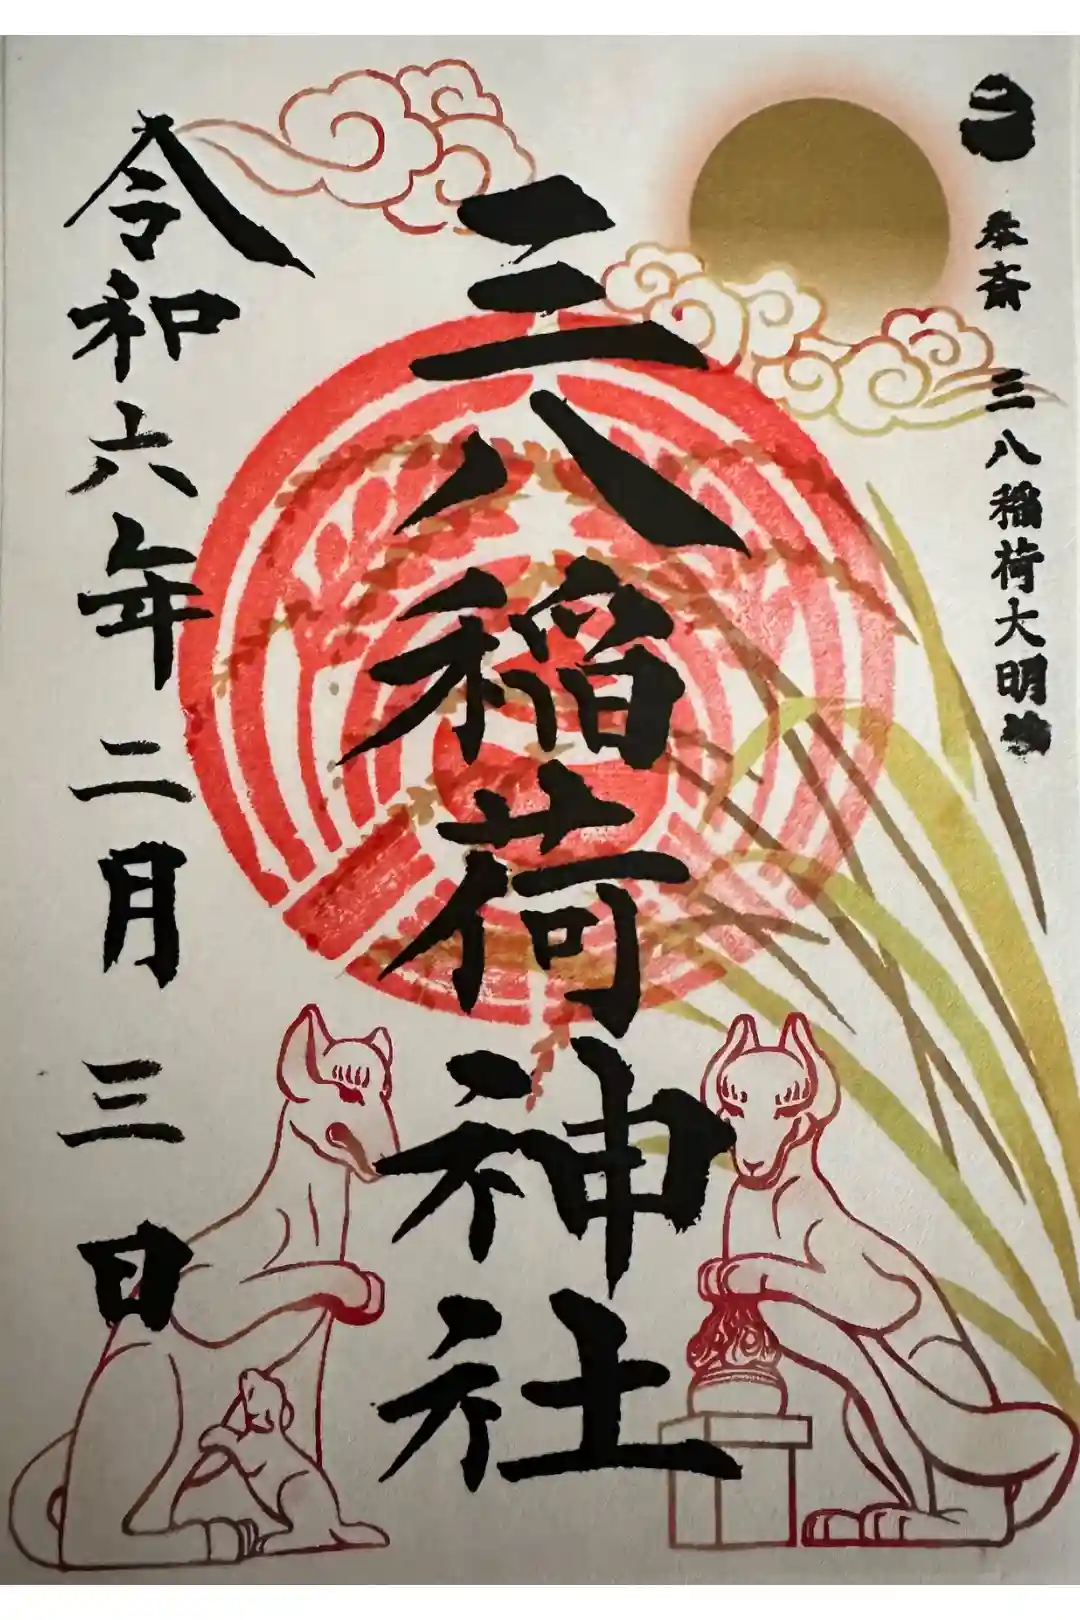 奉斎 三八稲荷大明神
三八稲荷神社
令和六年二月三日